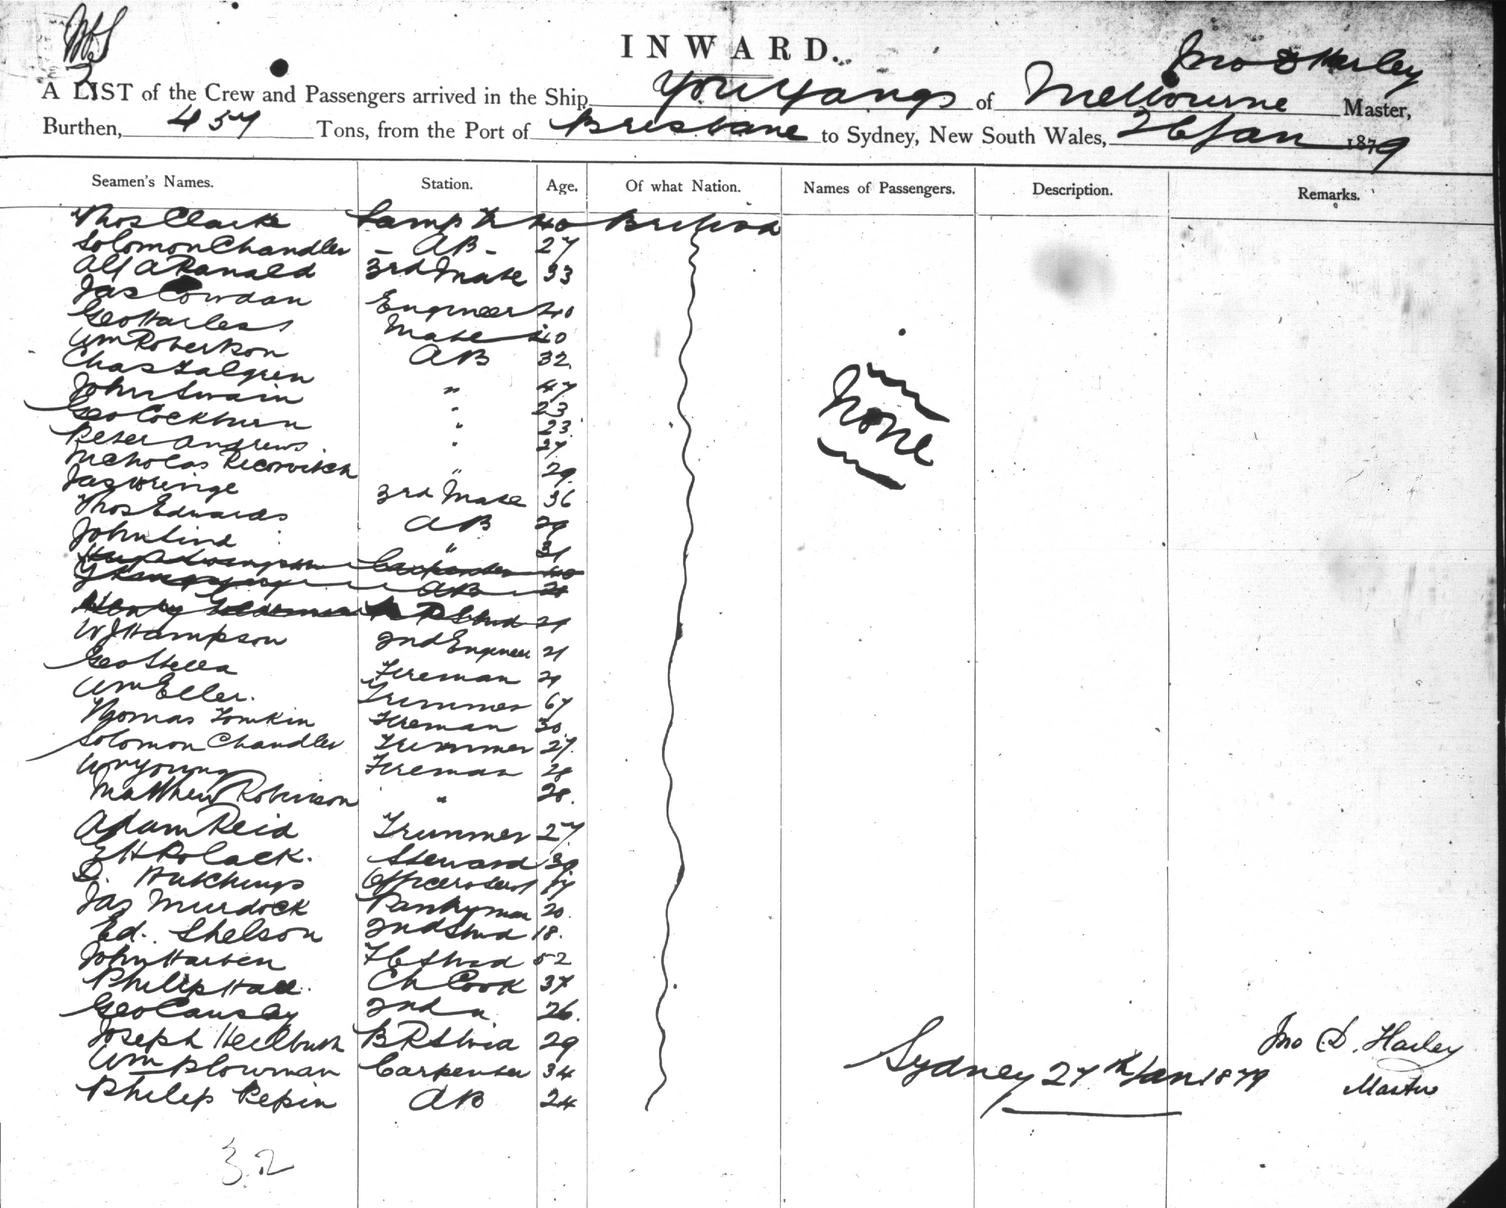 INWARD.
Jno D Harley
A LIST of the Crew and Passengers arrived in the Ship You Yangs of Melbourne Master,
Burthen, 457 Tons, from the Port of Brisbane to Sydney, New South Wales, 26 Jan 1879
Seamen's Names. Station. Age. Of what Nation. Names of Passengers. Description. Remarks.
Thos Clarke Lamp Tr 40 British
Solomon Chandler - AB - 27
Alf A Ranald 3rd Mate 33
Jas Cowdan Engineer 40
Geo Harless Mate 40
Wm Robertson AB 32
Chas Falgren " 47
John Swain " 23
Geo Cockburn " 23
Peter Andrews " 27
Nicholas " 29
Jas Wringe 3rd Mate 36
Thos Edwards AB 29
John Lind " 31
Carpenter 40
AB 28
Henry 21
W J Hampson 2nd Engineer 21
Geo Stella Fireman 21
Wm Eller. Trimmer 67
Thomas Tomkin Fireman 30
Solomon Chandler Trimmer 27
Wm Young Fireman 28
Matthew Robinson " 28.
Adam Reid Trimmer 27
Polack. Steward 39
Hutchings 17
Jas Murdock Pantryman 20
Ed. Shelson 2nd Stwd 18.
John Harben Stwd 52
Philip Hall. Ch Cook 37
Geo Causby 2nd " 26.
Joseph Heilbuth 29
Wm Plowman Carpenter 34
Philip Pepin AB 24
None
Sydney 27th Jan 1879
Jno D. Harley
Master
32